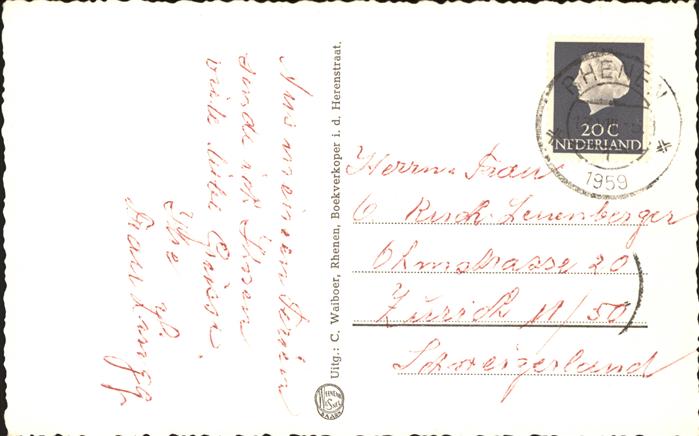 Aus meinen Ferien
sende ich Ihnen
viele liebe Grüsse
Ihre
Frau
Uitg.: C. Waiboer, Rhenen, Boekverkoper i. d. Herenstraat.
RHENEN
1959
20 C
NEDERLAND
Herrn. Frau
Ruch. Leuenberger
Ohmstrasse 20
Zürich 11/50
Schweizerland